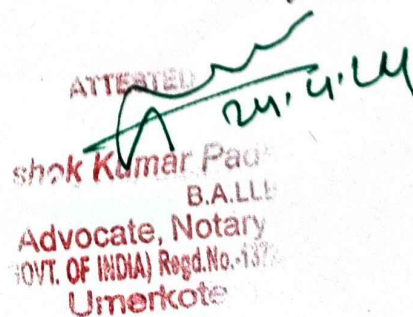 ATTESTED
24.4.24
shok Kumar Pad
B.A.LLB
Advocate, Notary
OVT. OF INDIA) Regd.No.-137
Umerkote